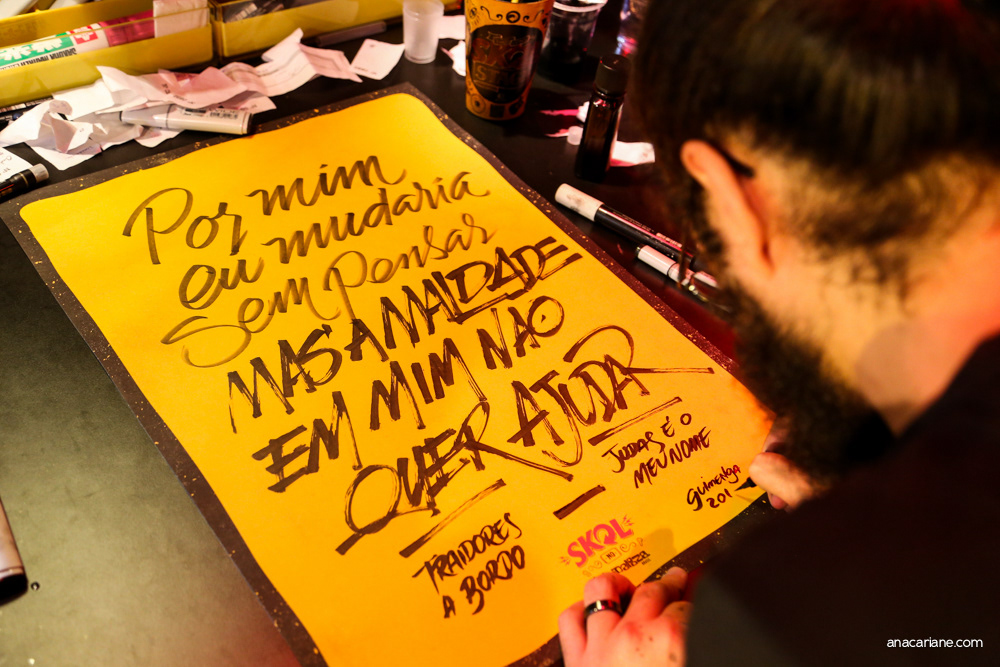 Por mim
eu mudaria
Sem pensar
MAS A MALDADE
EM MIM NÃO
QUER AJUDAR
JUDAS É O
MEU NOME
TRAIDORES
A BORDO
SKOL
anacariane.com